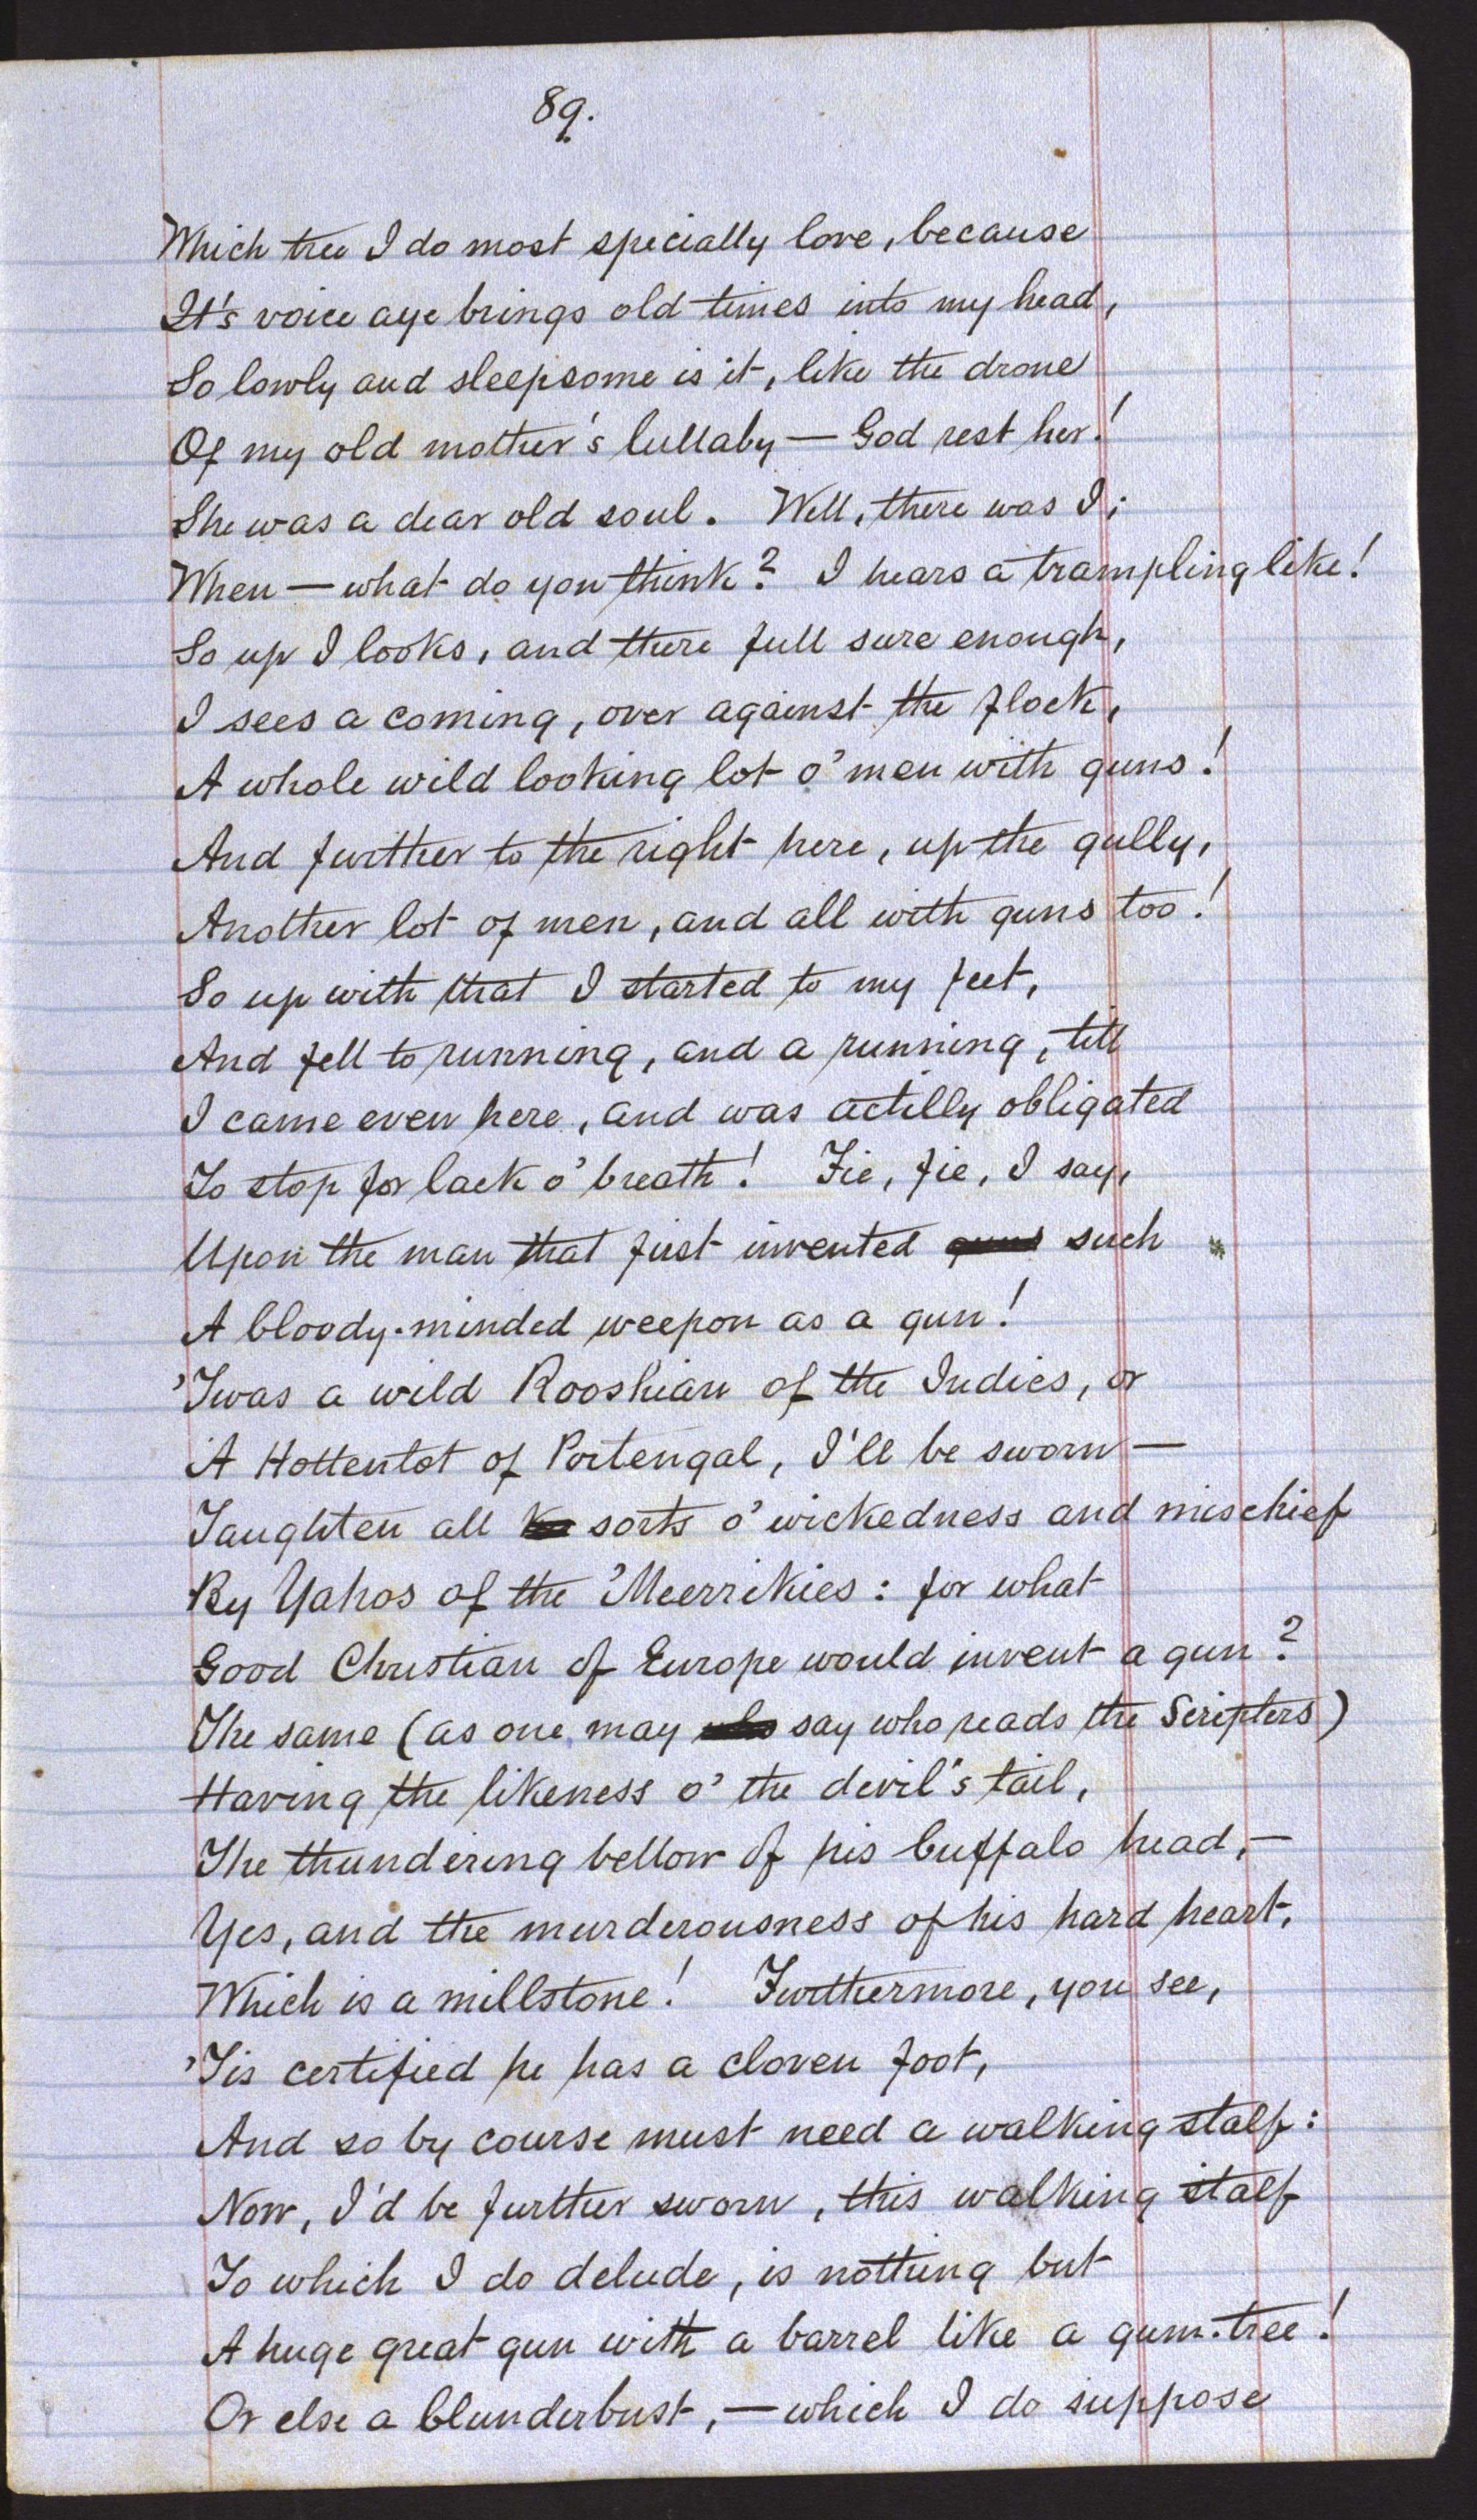 89.
Which tree I do most specially love, because
It's voice aye brings old times into my head,
So lowly and sleepsome is it, like the drone
Of my old mother's lullaby — God rest her!
She was a dear old soul. Well, there was I;
When — what do you think? I hears a trampling like!
So up I looks, and there full sure enough,
I sees a coming, over against the flock,
A whole wild looking lot o' men with guns!
And further to the right here, up the gully,
Another lot of men, and all with guns too!
So up with that I started to my feet,
And fell to running, and a running, till
I came even here, and was actilly obligated
To stop for lack o' breath! Fie, fie, I say,
Upon the man that first invented guns such
A bloody-minded weepon as a gun!
'Twas a wild Rooshian of the Indies, or
A Hottentot of Portengal, I'll be sworn —
Taughten all sorts o' wickedness and mischief
By Yahos of the 'Meerrikies: for what
Good Christian of Europe would invent a gun?
The same (as one may who say who reads the Scripters)
Having the likeness o' the devil's tail,
The thundering bellow of his buffalo head, —
Yes, and the murderousness of his hard heart,
Which is a millstone! Furthermore, you see,
'Tis certified he has a cloven foot,
And so by course must need a walking stalf:
Now, I'd be further sworn, this walking stalf
To which I do delude, is nothing but
A huge great gun with a barrel like a gum-tree!
Or else a blunderbust, — which I do suppose